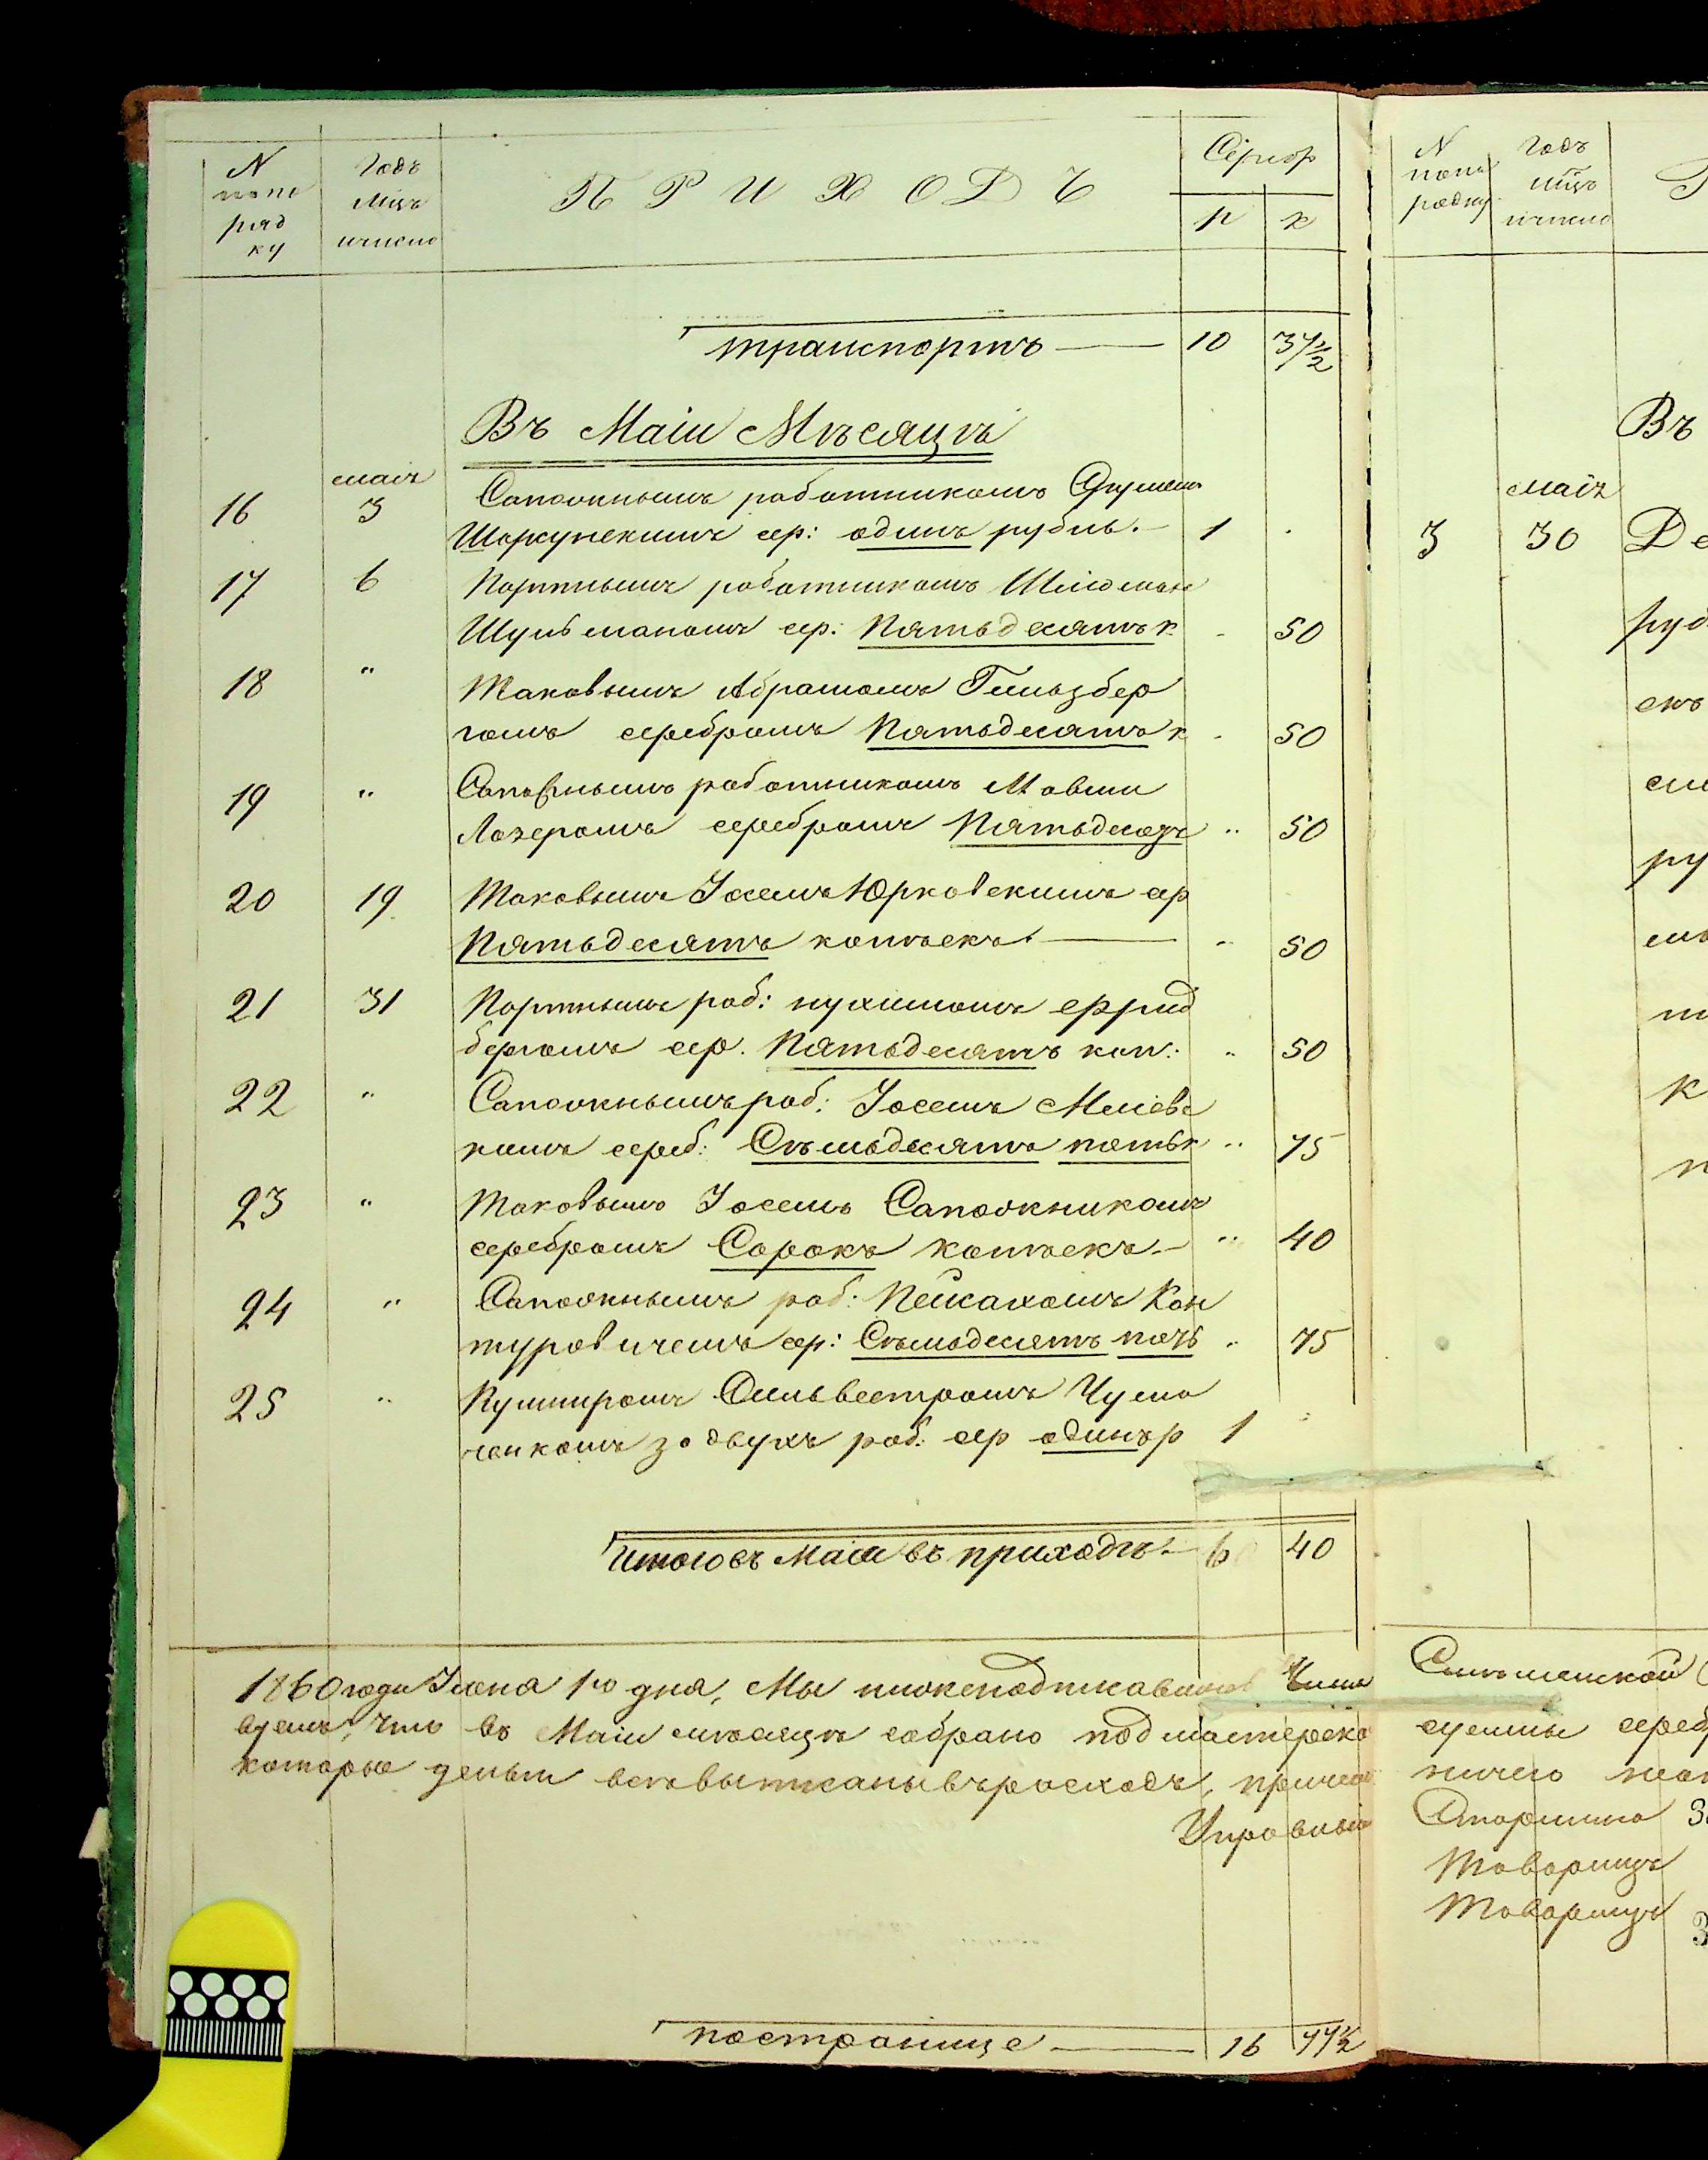 N
попо
ряд
ку
Годъ
Мцъ
ичисло
ПРИХОДЪ
Серебр
р
к
транспортъ — 10 37½
Въ Маіи Мѣсяцѣ
маія
16 3 Сапожнымъ работникомъ
Шаргунскимъ сер: одинъ рубль. — 1
17 6 Портнымъ работникомъ Шліомою
Шульманомъ сер: Пятьдесятъ к. - 50
18 " Таковымъ Абрамомъ Гинзбер
гомъ серебромъ Пятьдесятъ к - 50
19 " Сапожнымъ работникомъ Мовши
Лазеромъ серебромъ Пятьдесятъ " 50
20 19 Таковымъ Іосемъ Юрковскимъ сер
Пятьдесятъ копѣекъ. — " 50
21 31 Портнымъ раб: нухимомъ
бергомъ сер. Пятьдесятъ коп: " 50
22 " Сапожнымъ раб: Іосемъ
кимъ сереб: Сѣмьдесятъ пять к " 75
23 " Таковымъ Іосемъ Сапожникомъ
серебромъ Сорокъ копѣекъ. — " 40
24 " Сапожнымъ раб: Пейсахомъ Кон
туровичемъ сер: Сѣмьдесятъ пять " 75
25 " Кушниромъ Сильвестромъ Чума
ченкомъ за двухъ раб: сер одинъ р 1
Итого въ Маіи въ приходѣ. — 6 40
1860 года Іюня 1го дня, Мы нижеподписавшіеся
вуемъ, что въ Маіи мѣсяцѣ собрано подмастерско
которые деньги всѣ выписаны въ расходъ, причем
Управной
постранице — 16 77½
N
попо
рядку
Годъ
мцъ
ичисло
Въ
маія
3 30 Де
руб
екъ
ру
к
сум̃мы сереб
ничего неос
Старшина
Товарищъ
Товарищъ